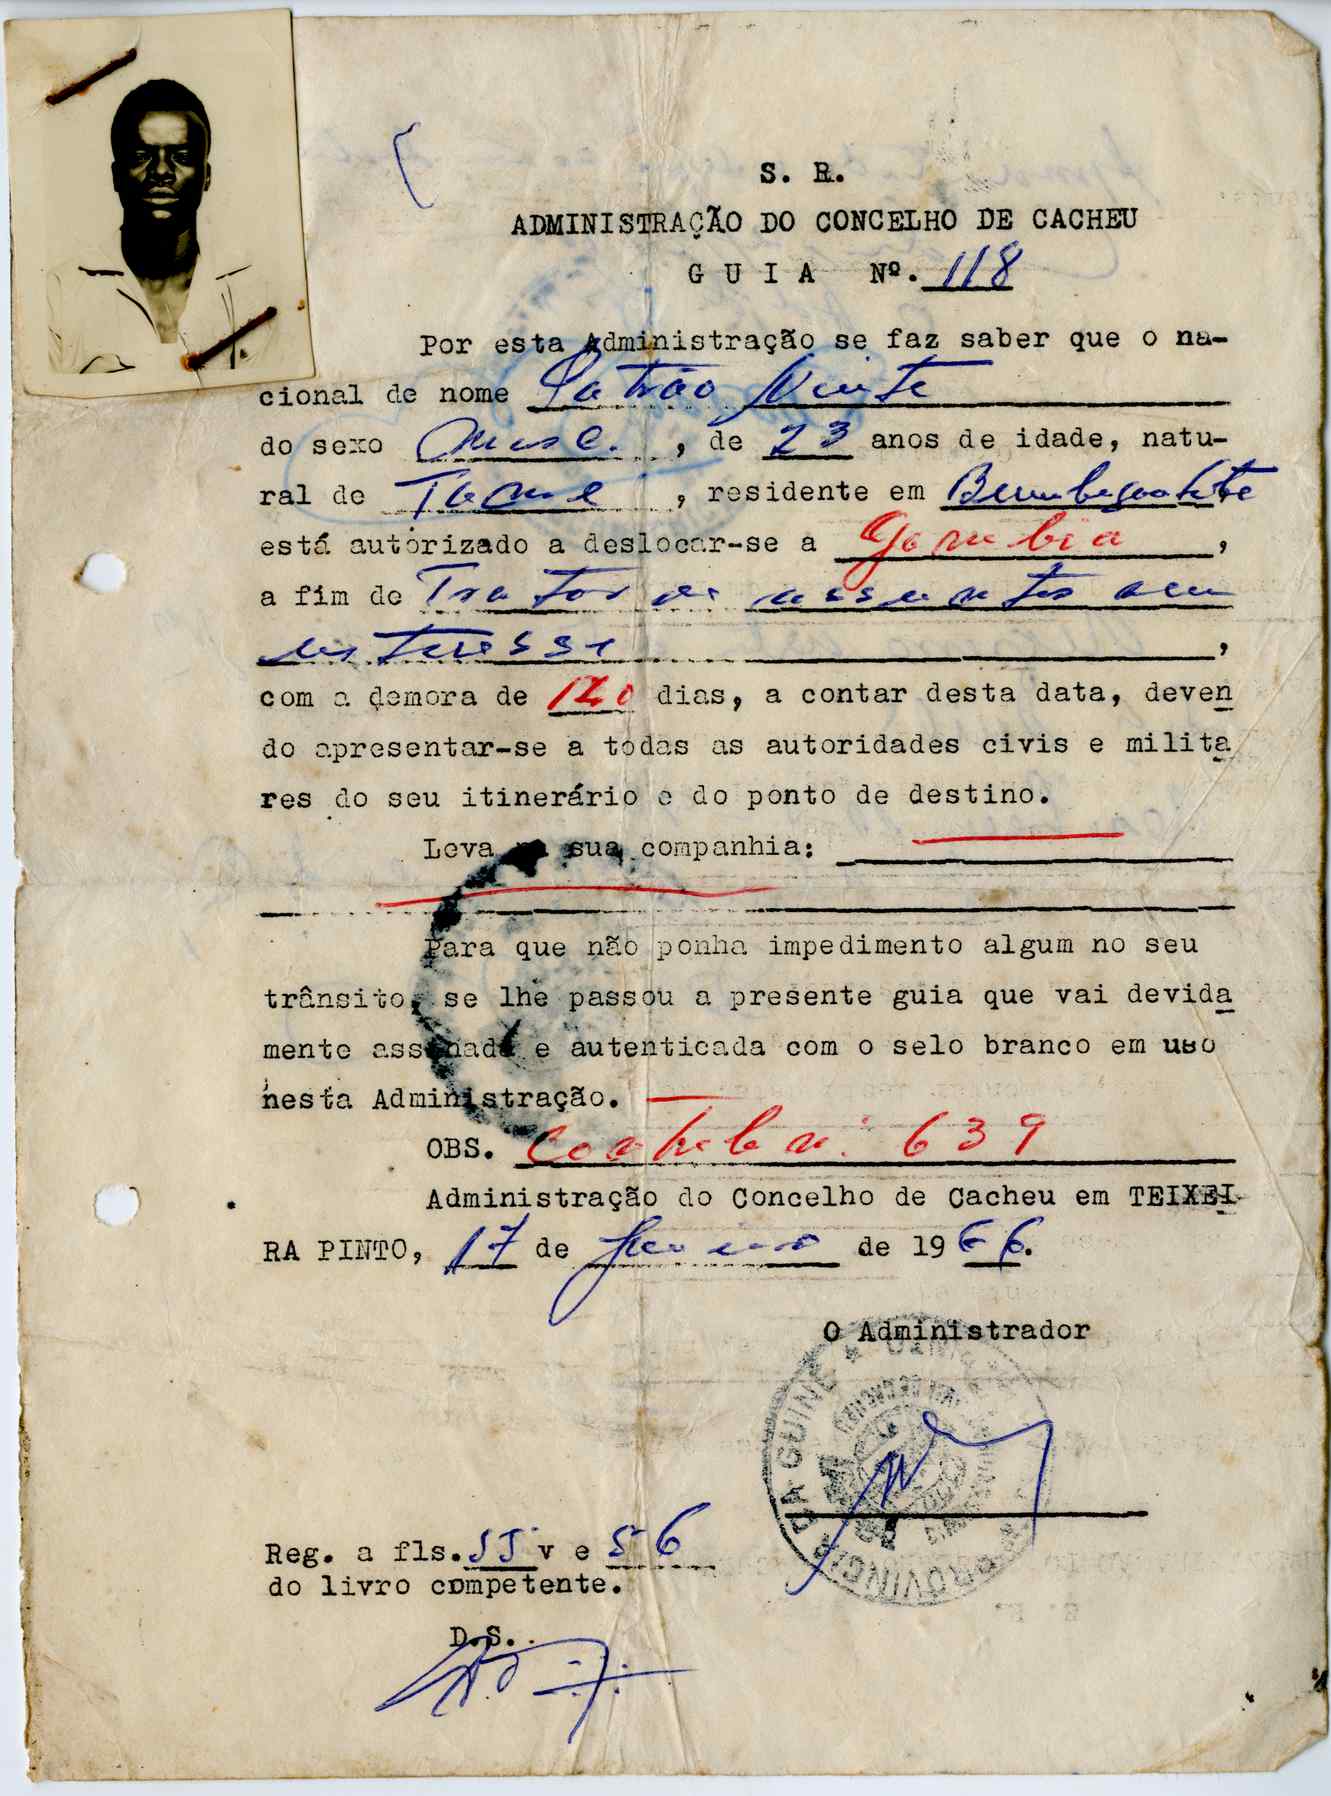 S. R.
ADMINISTRAÇÃO DO CONCELHO DE CACHEU
G U I A Nº. 118
Por esta Administração se faz saber que o na-
cional de nome Patrão
do sexo Masc. , de 23 anos de idade, natu-
ral de Tame , residente em
está autorizado a deslocar-se a Gambia ,
a fim de Tratar de assuntos seu
interesse ,
com a demora de 120 dias, a contar desta data, deven
do apresentar-se a todas as autoridades civis e milita
res do seu itinerário e do ponto de destino.
Leva na sua companhia:
Para que não ponha impedimento algum no seu
trânsito, se lhe passou a presente guia que vai devida
mente assinada e autenticada com o selo branco em uso
nesta Administração.
OBS. 639
Administração do Concelho de Cacheu em TEIXEI
RA PINTO, 17 de de 1966.
O Administrador
PROVINCIA DA GUINÉ
Reg. a fls. 55 v e 56
do livro competente.
D.S.